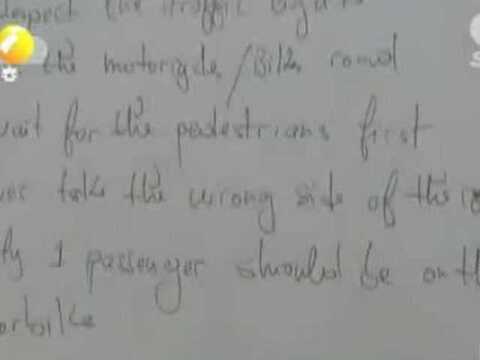 respect the traffic signs
the motorcycle/Bike round
wait for the padestrians first
take the wrong side of the ro
1 passenger should be on th
orbike